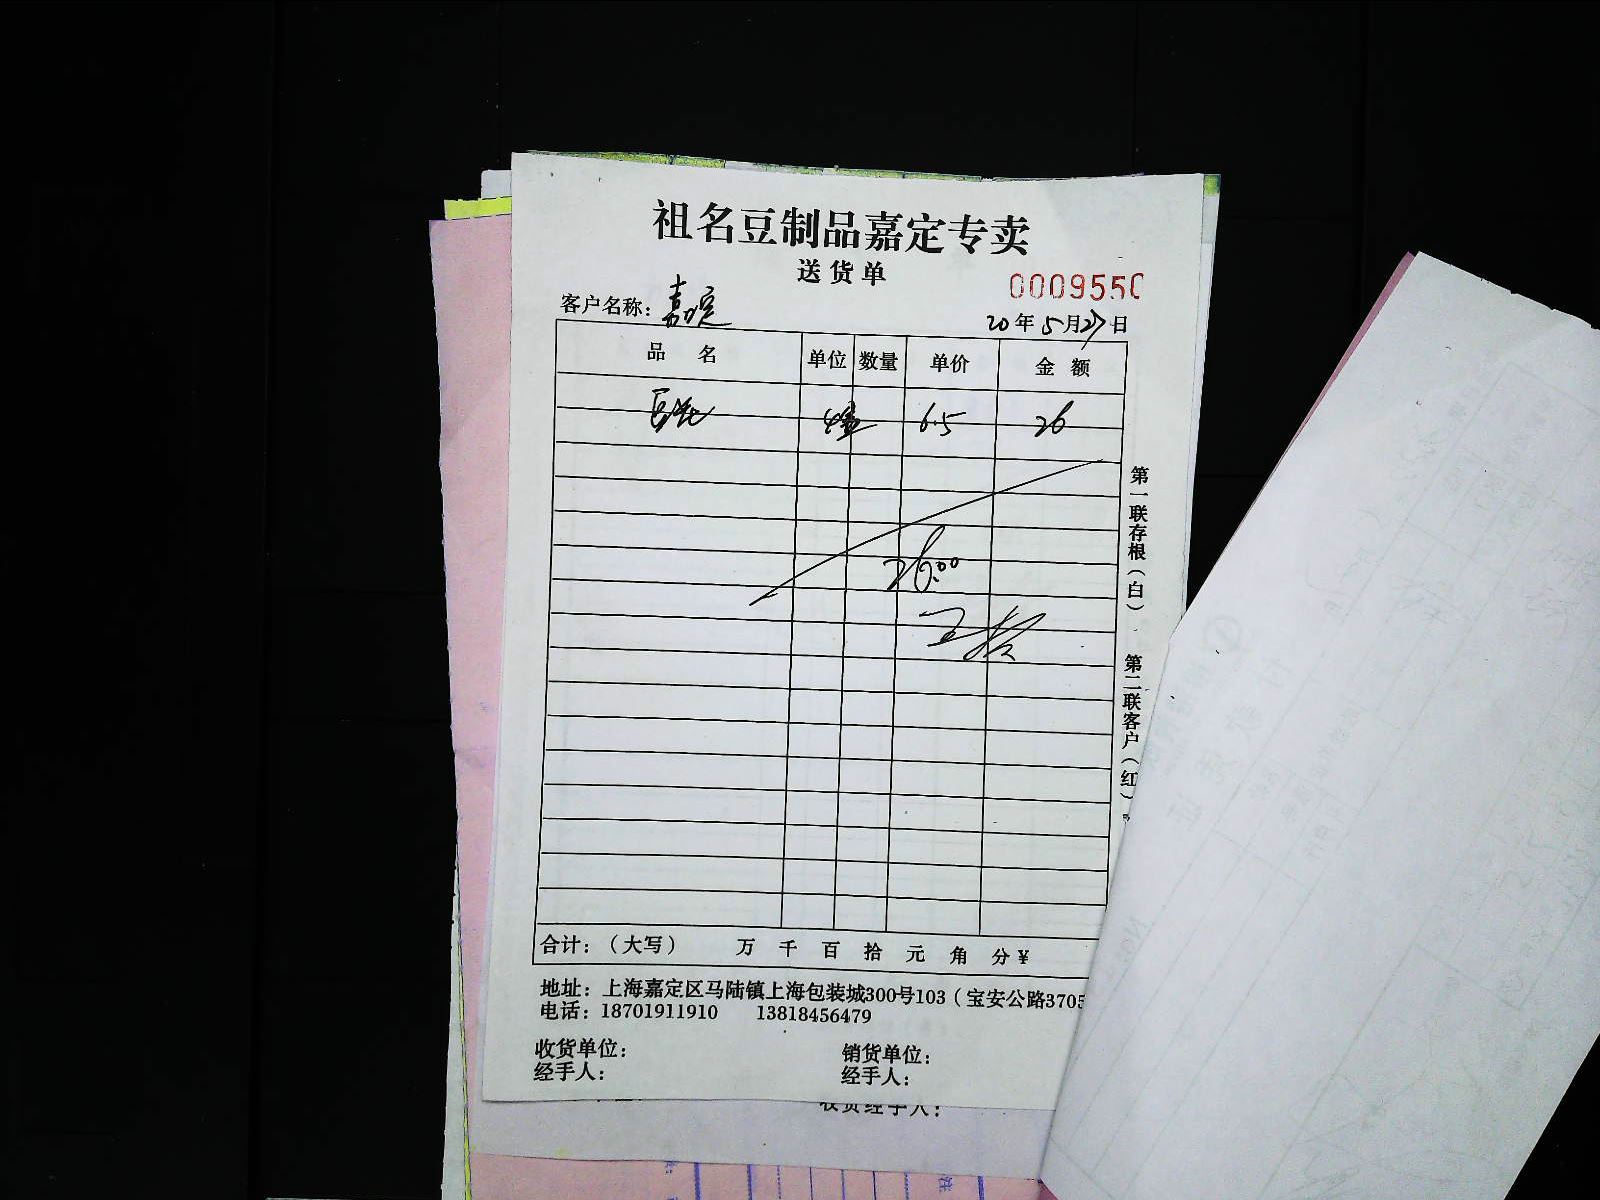 祖名豆制品嘉定专卖
送货单
000955
客户名称：嘉定
20年5月27日
品 名 单位 数量 单价 金 额
4盒 6.5 26
26.00
第一联存根（白） 第二联客户（红）
合计：（大写） 万 千 百 拾 元 角 分 ¥
地址：上海嘉定区马陆镇上海包装城300号103（宝安公路3705
电话：18701911910 13818456479
收货单位： 销货单位：
经手人： 经手人：
收货经手人：